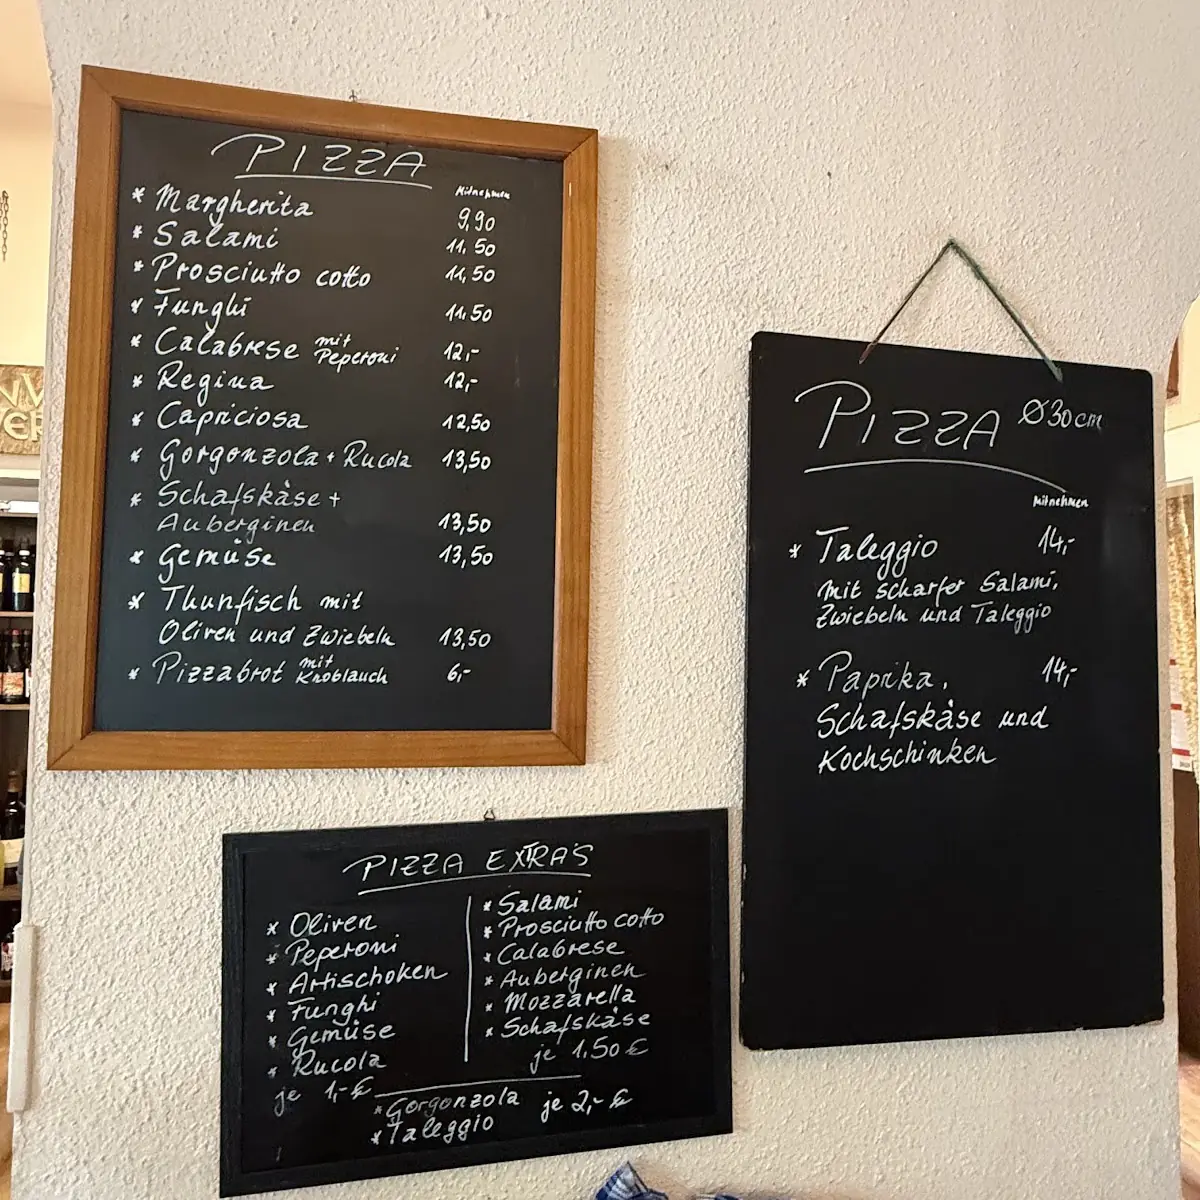 PIZZA
Mitnehmen
* Margherita 9,90
* Salami 11,50
* Prosciutto cotto 11,50
* Funghi 11,50
* Calabrese mit Peperoni 12,-
* Regina 12,-
* Capriciosa 12,50
* Gorgonzola + Rucola 13,50
* Schafskäse +
Auberginen 13,50
* Gemüse 13,50
* Thunfisch mit
Oliven und Zwiebeln 13,50
* Pizzabrot mit Knoblauch 6,-
PIZZA Ø30cm
Mitnehmen
* Taleggio 14,-
mit scharfer Salami,
Zwiebeln und Taleggio
* Paprika, 14,-
Schafskäse und
Kochschinken
PIZZA EXTRA'S
* Oliven
* Peperoni
* Artischoken
* Funghi
* Gemüse
* Rucola
je 1,-€
* Salami
* Prosciutto cotto
* Calabrese
* Auberginen
* Mozzarella
* Schafskäse
je 1.50€
* Gorgonzola je 2,-€
* Taleggio